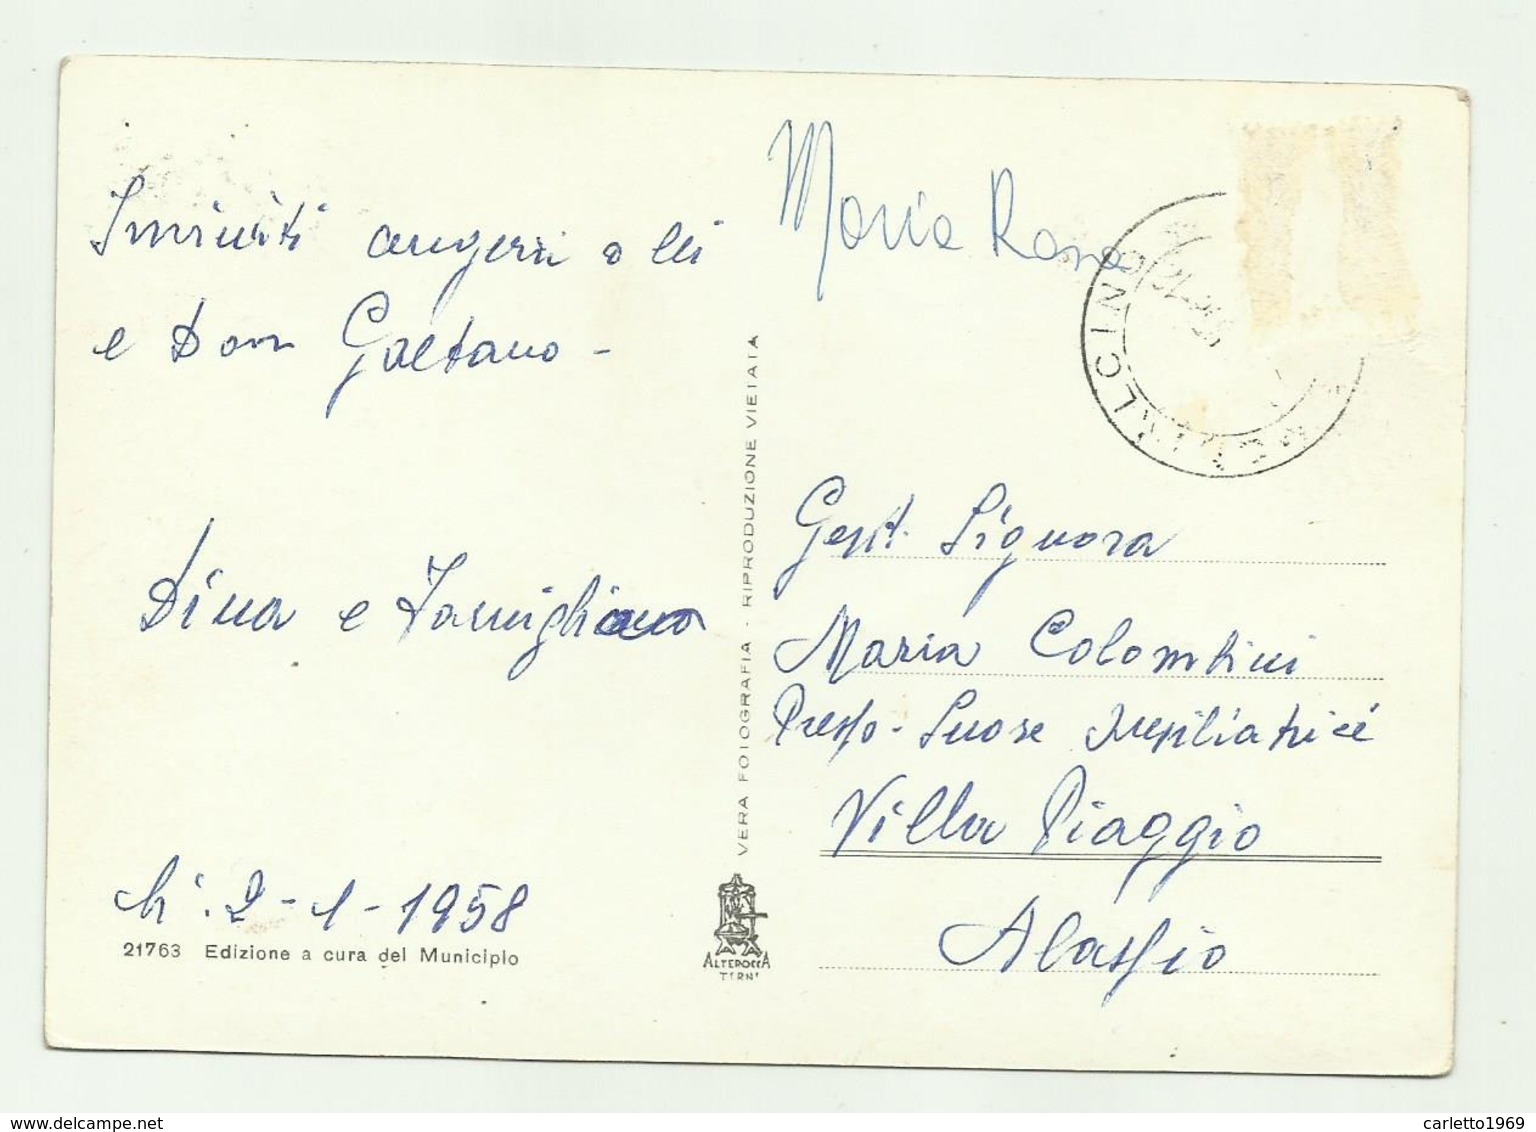 auguri a lei
e Don Gaetano -
Dina e Famiglia
lì. 2-1-1958
21763 Edizione a cura del Municipio
VERA FOTOGRAFIA - RIPRODUZIONE VIETATA
ALTEROCCA
TERNI
Maria Rosa
MONTALCINO
Gent. Signora
Maria Colombini
Presso - Suore
Villa Piaggio
Alassio
delcampe.net
carletto1969